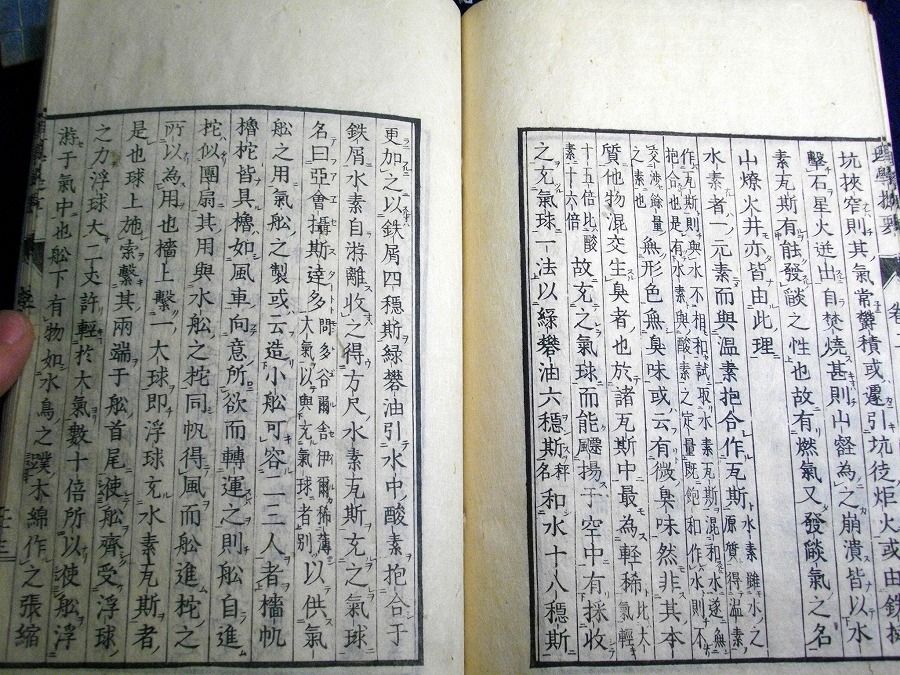 坑挾窄則其氣常欝積或遷引坑炬火或由鉄
擊石星火迸出自焚燒甚則山壑為之崩潰皆以水
素瓦斯有蝕發燄之性也故有燃氣又發燄氣之名
山燎火井亦皆由此理
水素者一元素而與温素抱合作瓦斯水素雖水之原質得温素
作瓦斯則與水不相和試取水素瓦斯混和水遂無抱合也是有水素與酸素之定量既飽和作水則不
受洩餘量之素也無形色無臭味或云有微臭味然非其本
質他物混交生臭者也於諸瓦斯中最為軽稀比大氣軽
十五倍比酸素十六倍故充之氣球而能飃揚于空中有採收
之充氣球一法以緑礬油六穩斯秤名和水十八穩斯
更加之以鉄屑四穩斯緑礬油引水中酸素抱合于
鉄屑水素自游離收之得方尺水素瓦斯充之氣球
名曰亞會攝斯達多問多谷爾舎伊爾稀薄大氣以與充氣球者別以供氣
舩之用氣舩之製或云造小舩可容二三人者檣帆
櫓柁皆具櫓如風車向意所欲而轉運之則舩自進
柁似團扇其用與水舩之柁同帆得風而舩進柁之
所以為用也檣上繫一大球即浮球充水素瓦斯者
是也球上施索繫其兩端于舩首尾使舩齊受浮球
之力浮球大二丈許輕於大氣數十倍所以使舩浮
游于氣中也舩下有物如水鳥之蹼木綿作之張縮